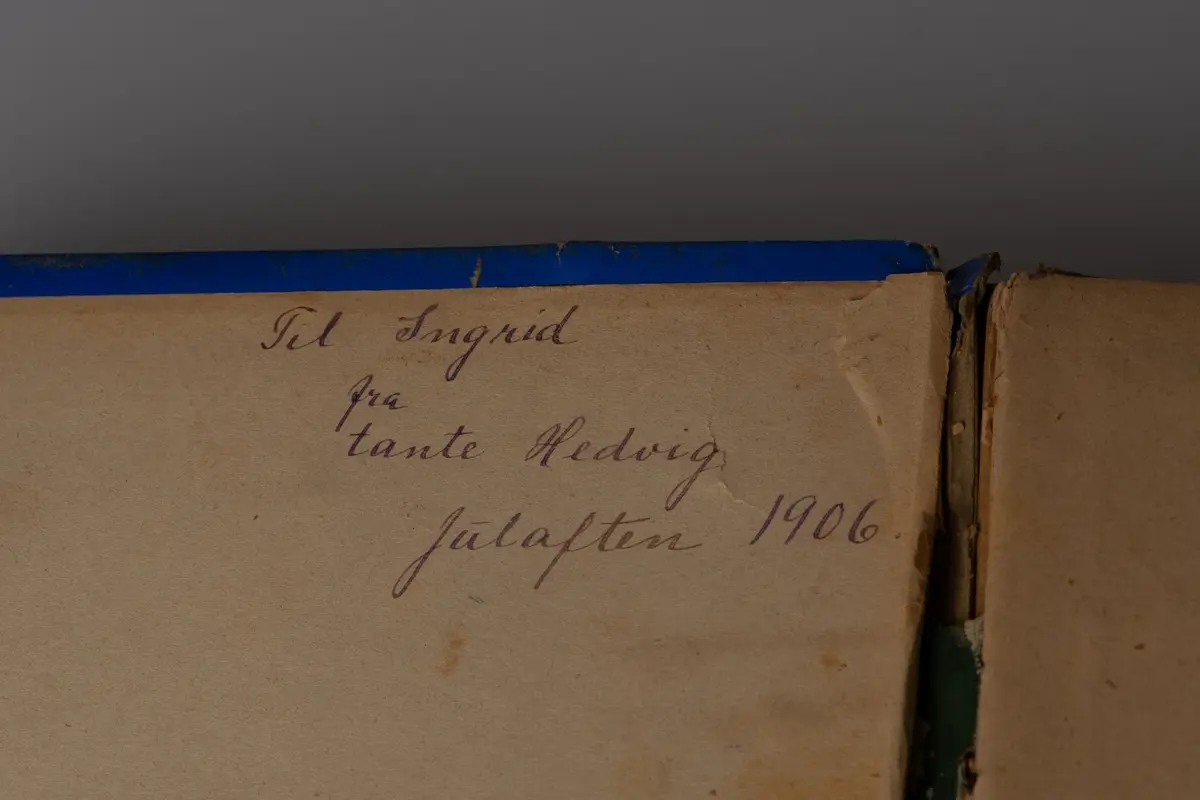 Til Ingrid
fra
tante Hedvig
Julaften 1906.